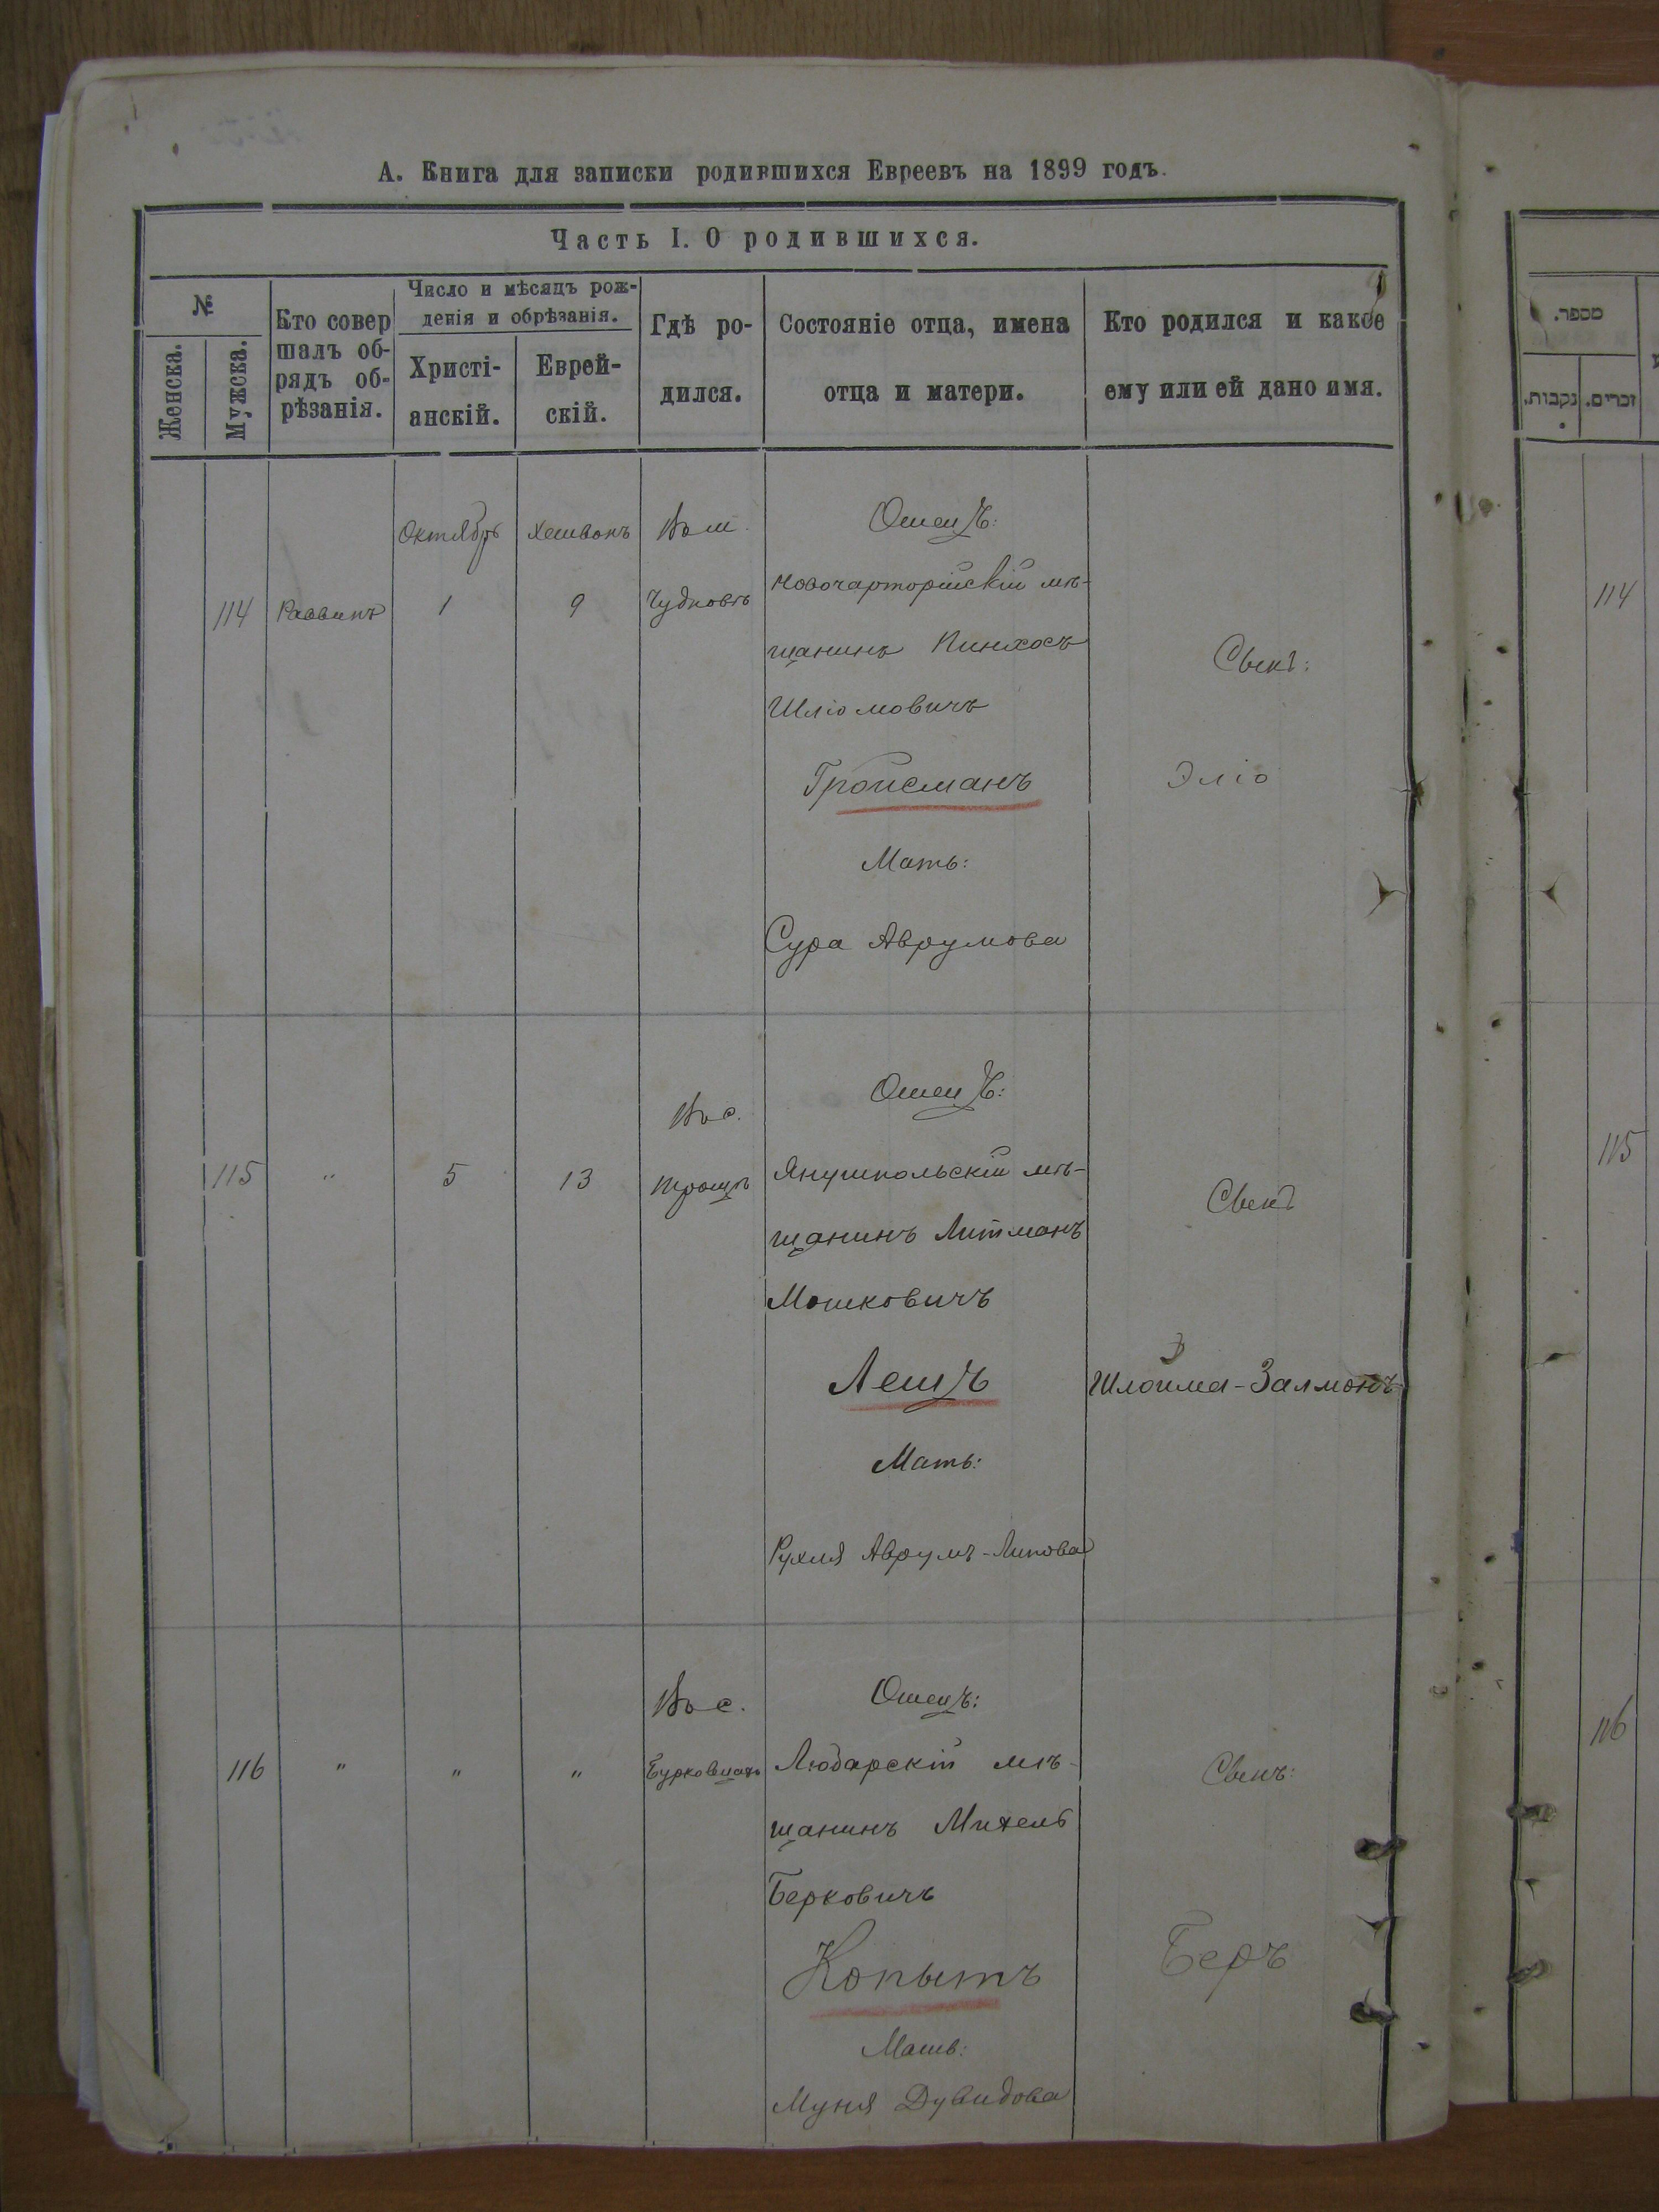 А. Книга для записки родившихся Евреевъ на 1899 годъ.
Часть I. О родившихся.
№
Женска.
Мужска.
Кто совер
шалъ об-
рядъ об-
рѣзанія.
Число и мѣсяцъ рож-
денія и обрѣзанія.
Христі-
анскій.
Еврей-
скій.
Гдѣ ро-
дился.
Состояніе отца, имена
отца и матери.
Кто родился и какое
ему или ей дано имя.
114
Раввинъ
Октябрь
1
Хешванъ
9
Въ м.
Чудновѣ
Отецъ:
Новочарторійскій мѣ-
щанинъ Пинхосъ
Шліомовичъ
Гройсманъ
Мать:
Сура Аврумова
Сынъ:
Эліо
115
"
5
13
Въ с.
Трощѣ
Отецъ:
Янушпольскій мѣ-
щанинъ Литманъ
Мошковичъ
Лещъ
Мать:
Рухля Аврумъ-Липова
Сынъ
Шлойма-Залманъ
116
"
"
"
Въ с.
Бурковцахъ
Отецъ:
Любарскій мѣ-
щанинъ Михель
Берковичъ
Копытъ
Мать:
Муня Дувидова
Сынъ:
Беръ
מספר.
נקבות.
זכרים.
114
115
116